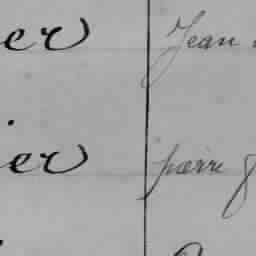 er Jean
ier pierre